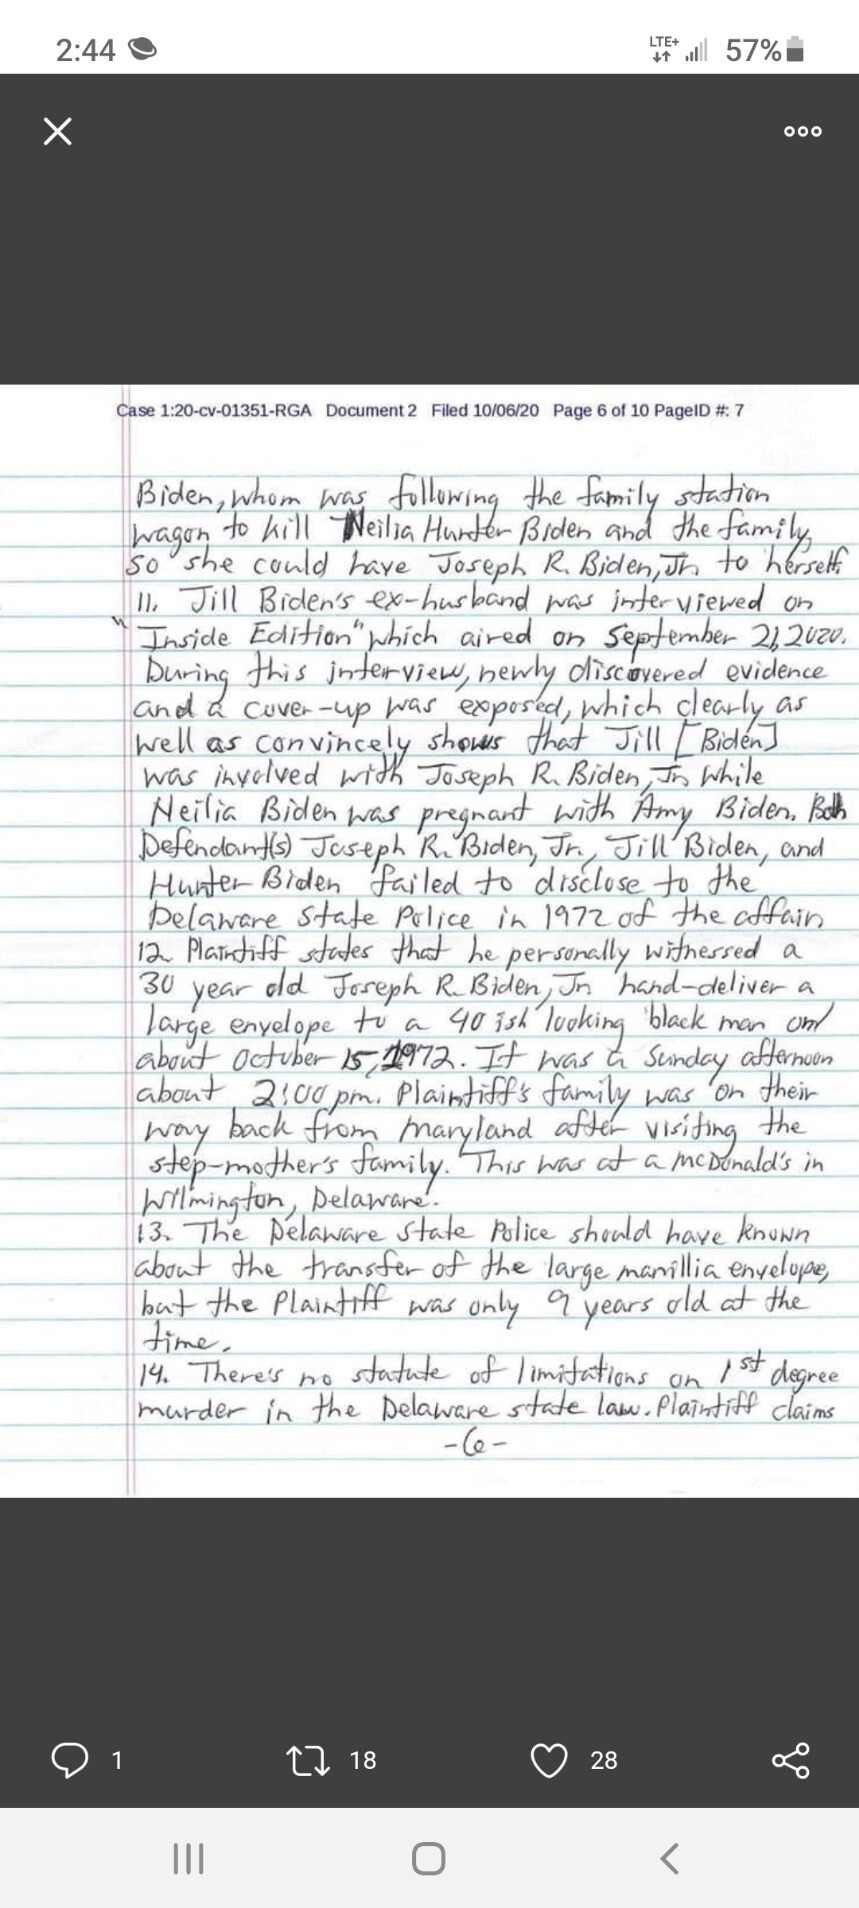 2:44
LTE+
57%
Case 1:20-cv-01351-RGA Document 2 Filed 10/06/20 Page 6 of 10 PageID #: 7
Biden, whom was following the family station
wagon to kill Neilia Hunter Biden and the family,
so she could have Joseph R. Biden, Jr. to herself.
11. Jill Biden's ex-husband was interviewed on
"Inside Edition" which aired on September 21, 2020.
During this interview, newly discovered evidence
and a cover-up was exposed, which clearly as
well as convincely shows that Jill [Biden]
was involved with Joseph R. Biden, Jr. while
Neilia Biden was pregnant with Amy Biden. Both
Defendant(s) Joseph R. Biden, Jr., Jill Biden, and
Hunter Biden failed to disclose to the
Delaware State Police in 1972 of the affair.
12. Plaintiff states that he personally witnessed a
30 year old Joseph R. Biden, Jr. hand-deliver a
large envelope to a 40 ish looking black man on/
about October 15, 1972. It was a Sunday afternoon
about 2:00 pm. Plaintiff's family was on their
way back from Maryland after visiting the
step-mother's family. This was at a McDonald's in
Wilmington, Delaware.
13. The Delaware State Police should have known
about the transfer of the large manillia envelope,
but the Plaintiff was only 9 years old at the
time.
14. There's no statute of limitations on 1st degree
murder in the Delaware state law. Plaintiff claims
-6-
1 18 28